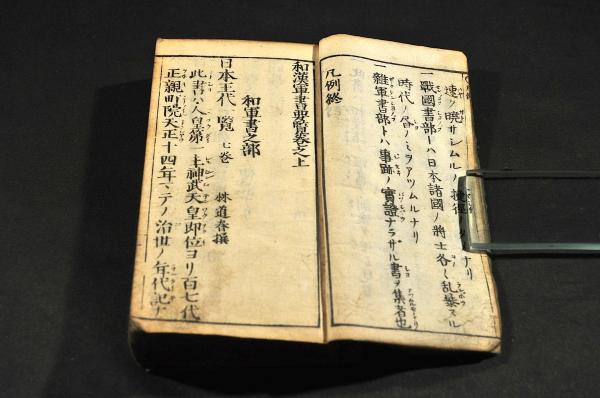 速ク暁サシムルノ捷徑ナリ
一戰國書部トハ日本諸國ノ將士各〻乱暴スル
時代ノ書ノミヲアツムルナリ
一雜軍書部トハ事跡ノ實證ナラサル書ヲ集者也
凡例終
和漢軍書要覧巻之上
和軍書之部
日本王代一覧 七巻 林道春撰
此書ハ人皇第一主神武天皇即位ヨリ百七代
正親町院天正十四年マテノ治世ノ年代記ナ